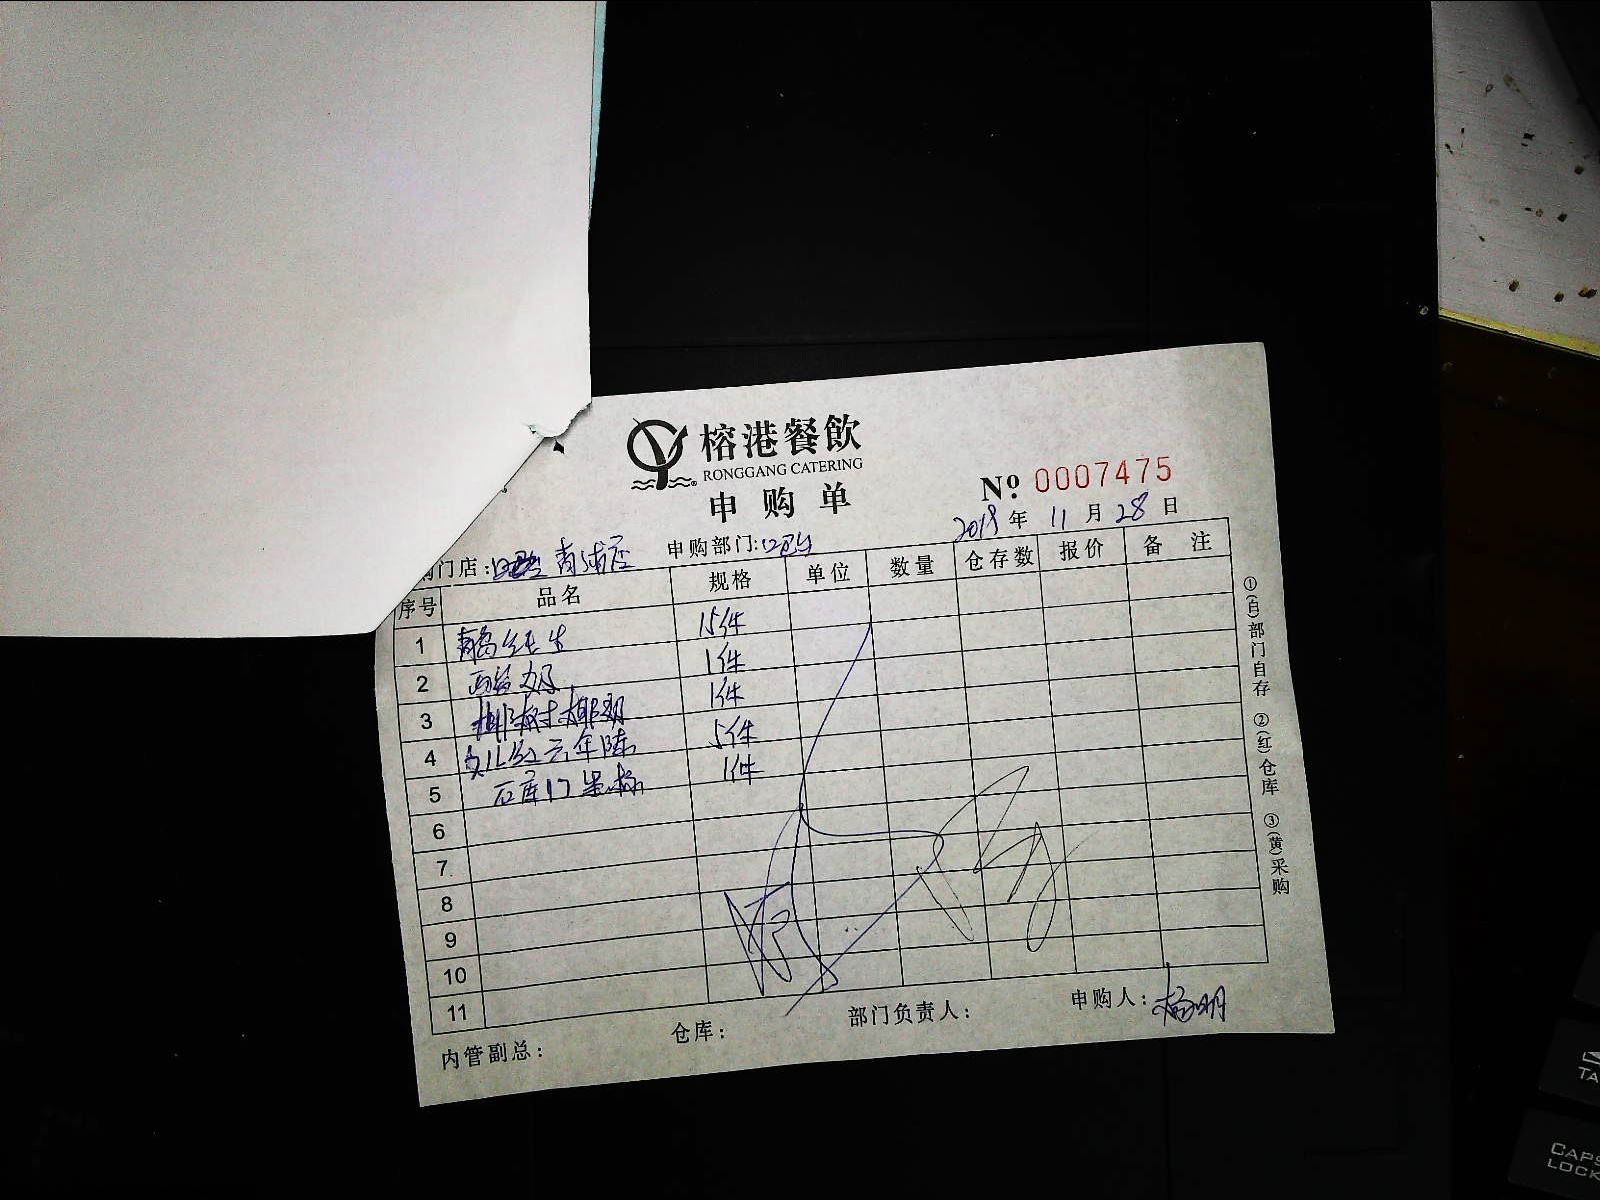 榕港餐飲
RONGGANG CATERING
申购单
№ 0007475
2019 年 11 月 28 日
门店: 青浦店 申购部门: 吧台
序号 品名 规格 单位 数量 仓存数 报价 备注
1 青岛纯生 15件
2 1件
3 椰树椰奶 1件
4 女儿红六年陈 5件
5 石库门黑标 1件
6
7
8
9
10
11
内管副总: 仓库: 部门负责人: 申购人: 杨明
①(白)部门自存 ②(红)仓库 ③(黄)采购
CAPS
LOCK